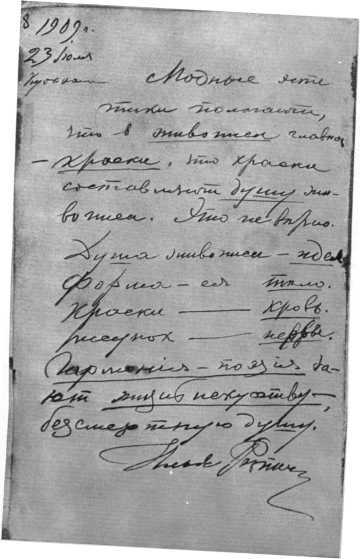 8 1909 г.
23 Июля
Куоккала Модные эсте
тики полагают,
что в живописи главное
– краски, что краски
составляют душу жи-
вописи. Это не верно.
Душа живописи – идея
Форма – ея тѣло.
Краски — кровь.
рисунок — нервы.
Гармонія – поэзія да-
ют жизнь искусству –,
безсмертную душу.
Илья Рѣпин